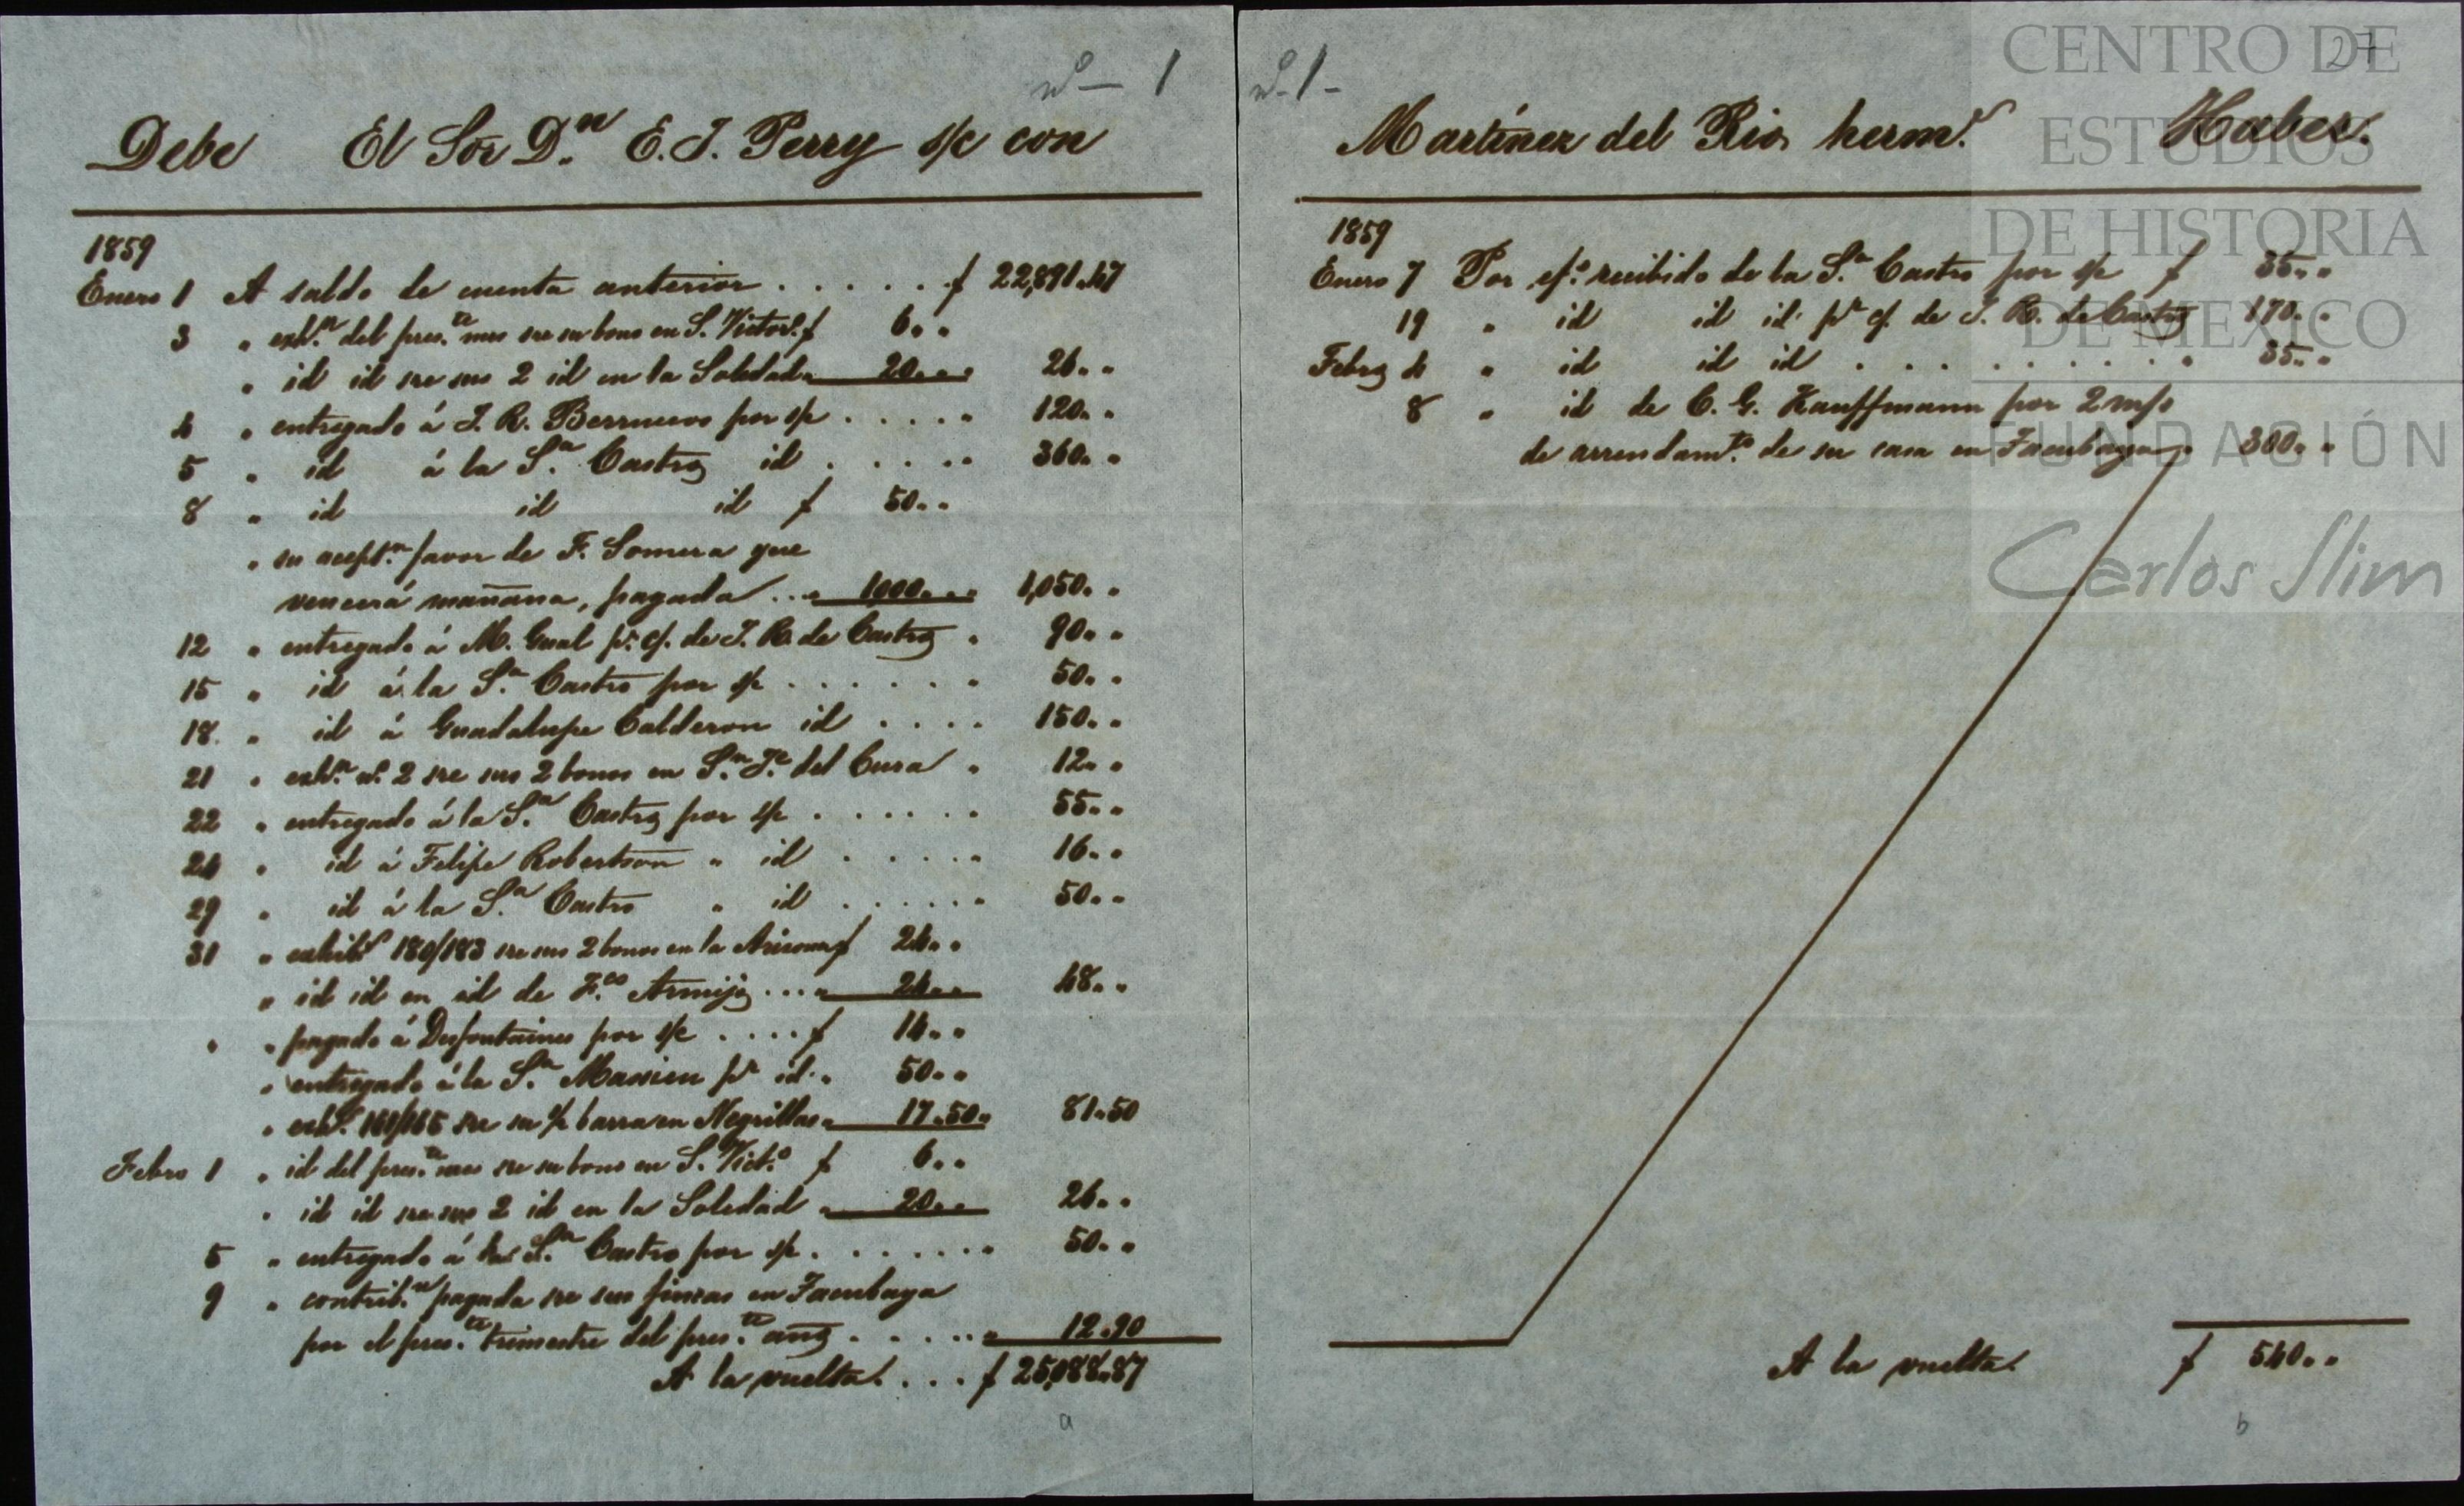 nº - 1
Debe El Sor Dn. E. J. Perry s/c con
1859
Enero 1 A saldo de cuenta anterior . . . . . $ 22,891.47
3 " exhn. del preste. mes sre su bono en S. Victoro. $ 6 " "
" id id sre sus 2 id en la Soledad " 20 " " 26 " "
4 " entregado á J. R. Berruecos por s/c . . . . . " 120 " "
5 " id á la Sa. Castro id . . . . " 360 " "
8 " id id id $ 50 " "
" su aceptn. favor de F. Somera que
vencerá mañana, pagada . . " 1000 " " 1,050 " "
12 " entregado á M. Gual pr. c/. de J. R. de Castro " 90 " "
15 " id á la Sa. Castro por s/c . . . . . . " 50 " "
18 " id á Guadalupe Calderon id . . . . 150 " "
21 " exhn. nº. 2 sre sus 2 bonos en Sn. Je. del Cura " 12 " "
22 " entregado á la Sa. Castro por s/c . . . . . . 55 " "
24 " id á Felipe Robertson " id . . . . . " 16 " "
29 " id á la Sa. Castro " id . . . . . " 50 " "
31 " exhibs 180/183 sre sus 2 bonos en la Arizona $ 24 " "
" id id en id de Fco. Armijo . . . " 24 " " 48 " "
" " pagado á Desfontaines por s/c . . . . $ 14 " "
" entregado á la Sa. pr id. " 50 " "
" exhs. 161/165 sre su ½ barra en Negrillas " 17 " 50 " 81 " 50
Febro 1 " id del preste. mes sre su bono en S. Victo. $ 6 " "
" id id sre sus 2 id en la Soledad " 20 " " 26 " "
5 " entregado á la Sa. Castro por s/c . . . . . . " 50 " "
9 " contribn. pagada sre sus fincas en Tacubaya
por el preste. trimestre del preste. año . . . . . " 12.90
A la vuelta . . . $ 25,088.87
a
nº. 1 -
27
Martinez del Rio herms. Haber.
1859
Enero 7 Por efo. recibido de la Sa. Castro por s/c $ 35 " "
19 " id id id. pr c/. de J. R. de Castro 170 " "
Febro 4 " id id id . . . . . . . . . " 35 " "
8 " id de C. G. Kauffmann por 2 m/s
de arrendamto. de su casa en Tacubaya " 300 " "
A la vuelta $ 540 " "
b
CENTRO DE
ESTUDIOS
DE HISTORIA
DE MEXICO
FUNDACIÓN
Carlos Slim